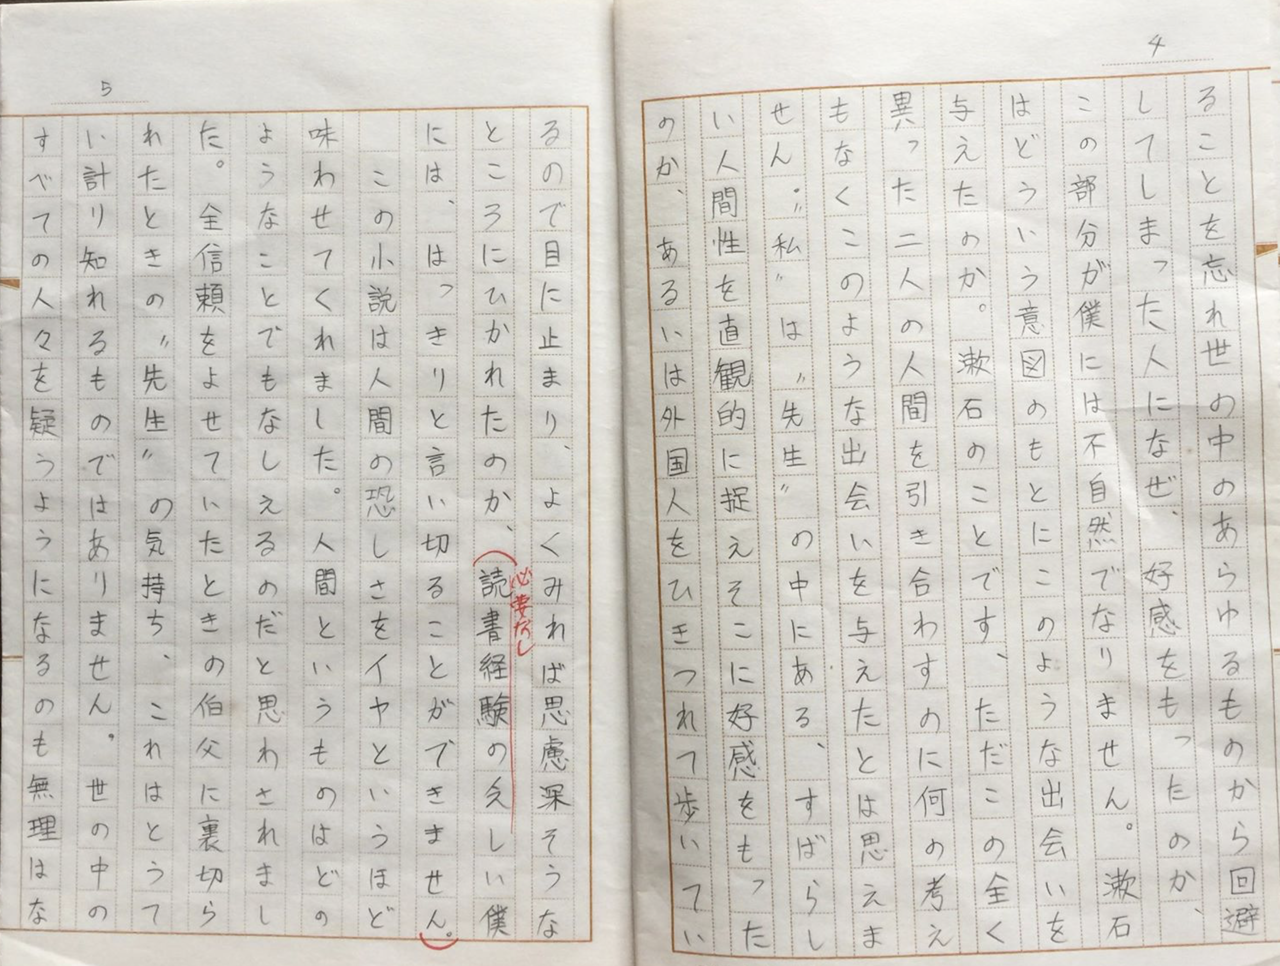 4
ることを忘れ世の中のあらゆるものから回避
してしまった人になぜ、好感をもったのか、
この部分が僕には不自然でなりません。漱石
はどういう意図のもとにこのような出会いを
与えたのか。漱石のことです、ただこの全く
異った二人の人間を引き合わすのに何の考え
もなくこのような出会いを与えたとは思えま
せん。〝私〟は〝先生〟の中にある、すばらし
い人間性を直観的に捉えそこに好感をもった
のか、あるいは外国人をひきつれて歩いてい
5
るので目に止まり、よくみれば思慮深そうな
ところにひかれたのか、読書経験の乏しい僕
必要なし
には、はっきりと言い切ることができません。
この小説は人間の恐しさをイヤというほど
味わせてくれました。人間というものはどの
ようなことでもなしえるのだと思わされまし
た。全信頼をよせていたときの伯父に裏切ら
れたときの〝先生〟の気持ち、これはとうて
い計り知れるものではありません。世の中の
すべての人々を疑うようになるのも無理はな